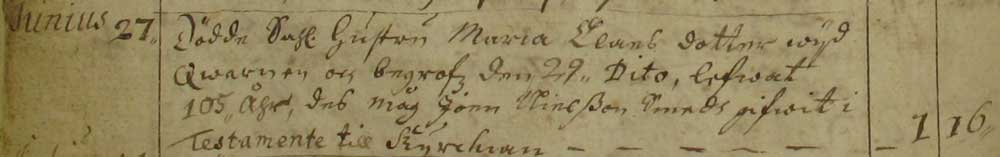 Junius 27. Dödde Sahl. Hustru Maria Claes dotter wijd
Qwarnen och begrofz den 29. Dito, lefwat
105 Åhr, des måg Joen Nielßon Smeds gifwit i
Testamente till Kyrckian — — — — — — 1 16.